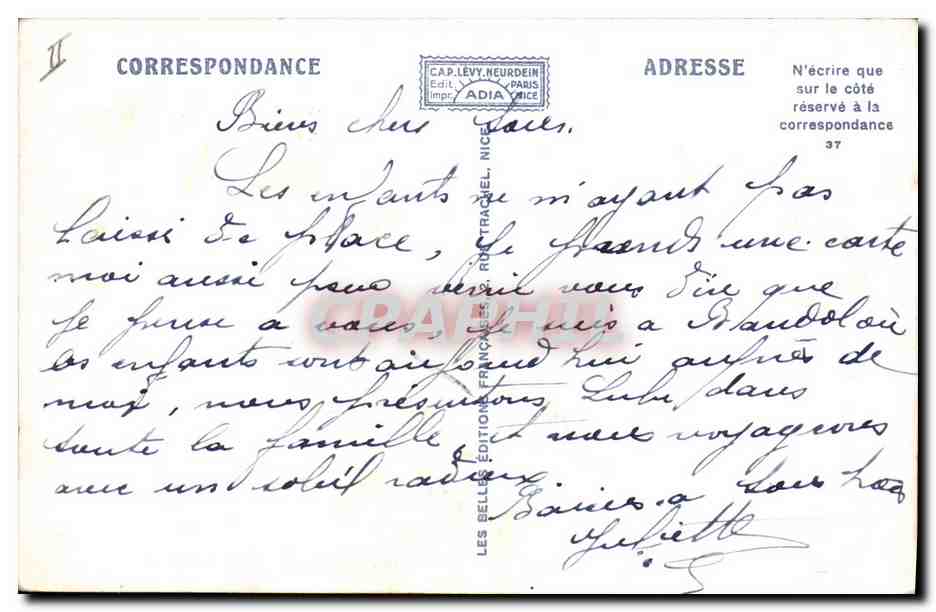 II
CORRESPONDANCE
CAP. LÉVY. NEURDEIN
Edit. PARIS
Impr. ADIA NICE
ADRESSE
N'écrire que
sur le côté
réservé à la
correspondance
37
LES BELLES ÉDITIONS FRANÇAISES, 2, RUE TRACHEL, NICE
CPAPHIL
Biens chers tous.
Les enfants ne m'ayant pas
laissé de place, je prends une carte
moi aussi pour venir vous dire que
je pense a vous, je suis a Bandol où
les enfants sont aujourd hui auprès de
moi, nous présentons Lulu dans
toute la famille, et nous voyageons
avec un soleil radieux
Baisers a tous
Juliette